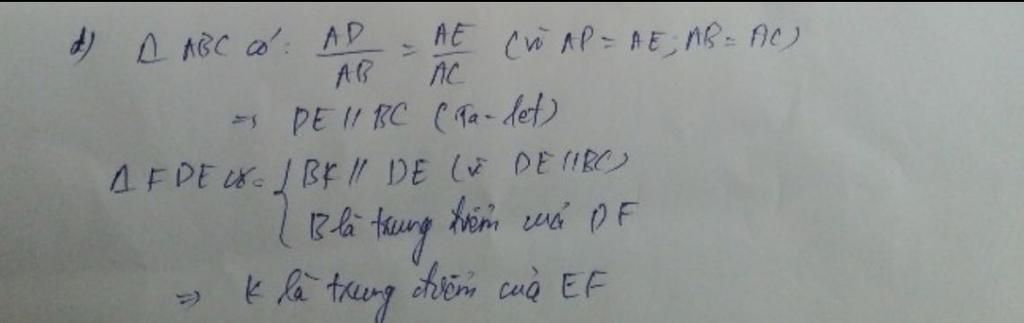 d) Δ ABC có: AD/AB = AE/AC (vì AD = AE; AB = AC)
=> DE // BC (Ta-let)
Δ FDE có: { BK // DE (vì DE // BC)
B là trung điểm của DF
=> K là trung điểm của EF